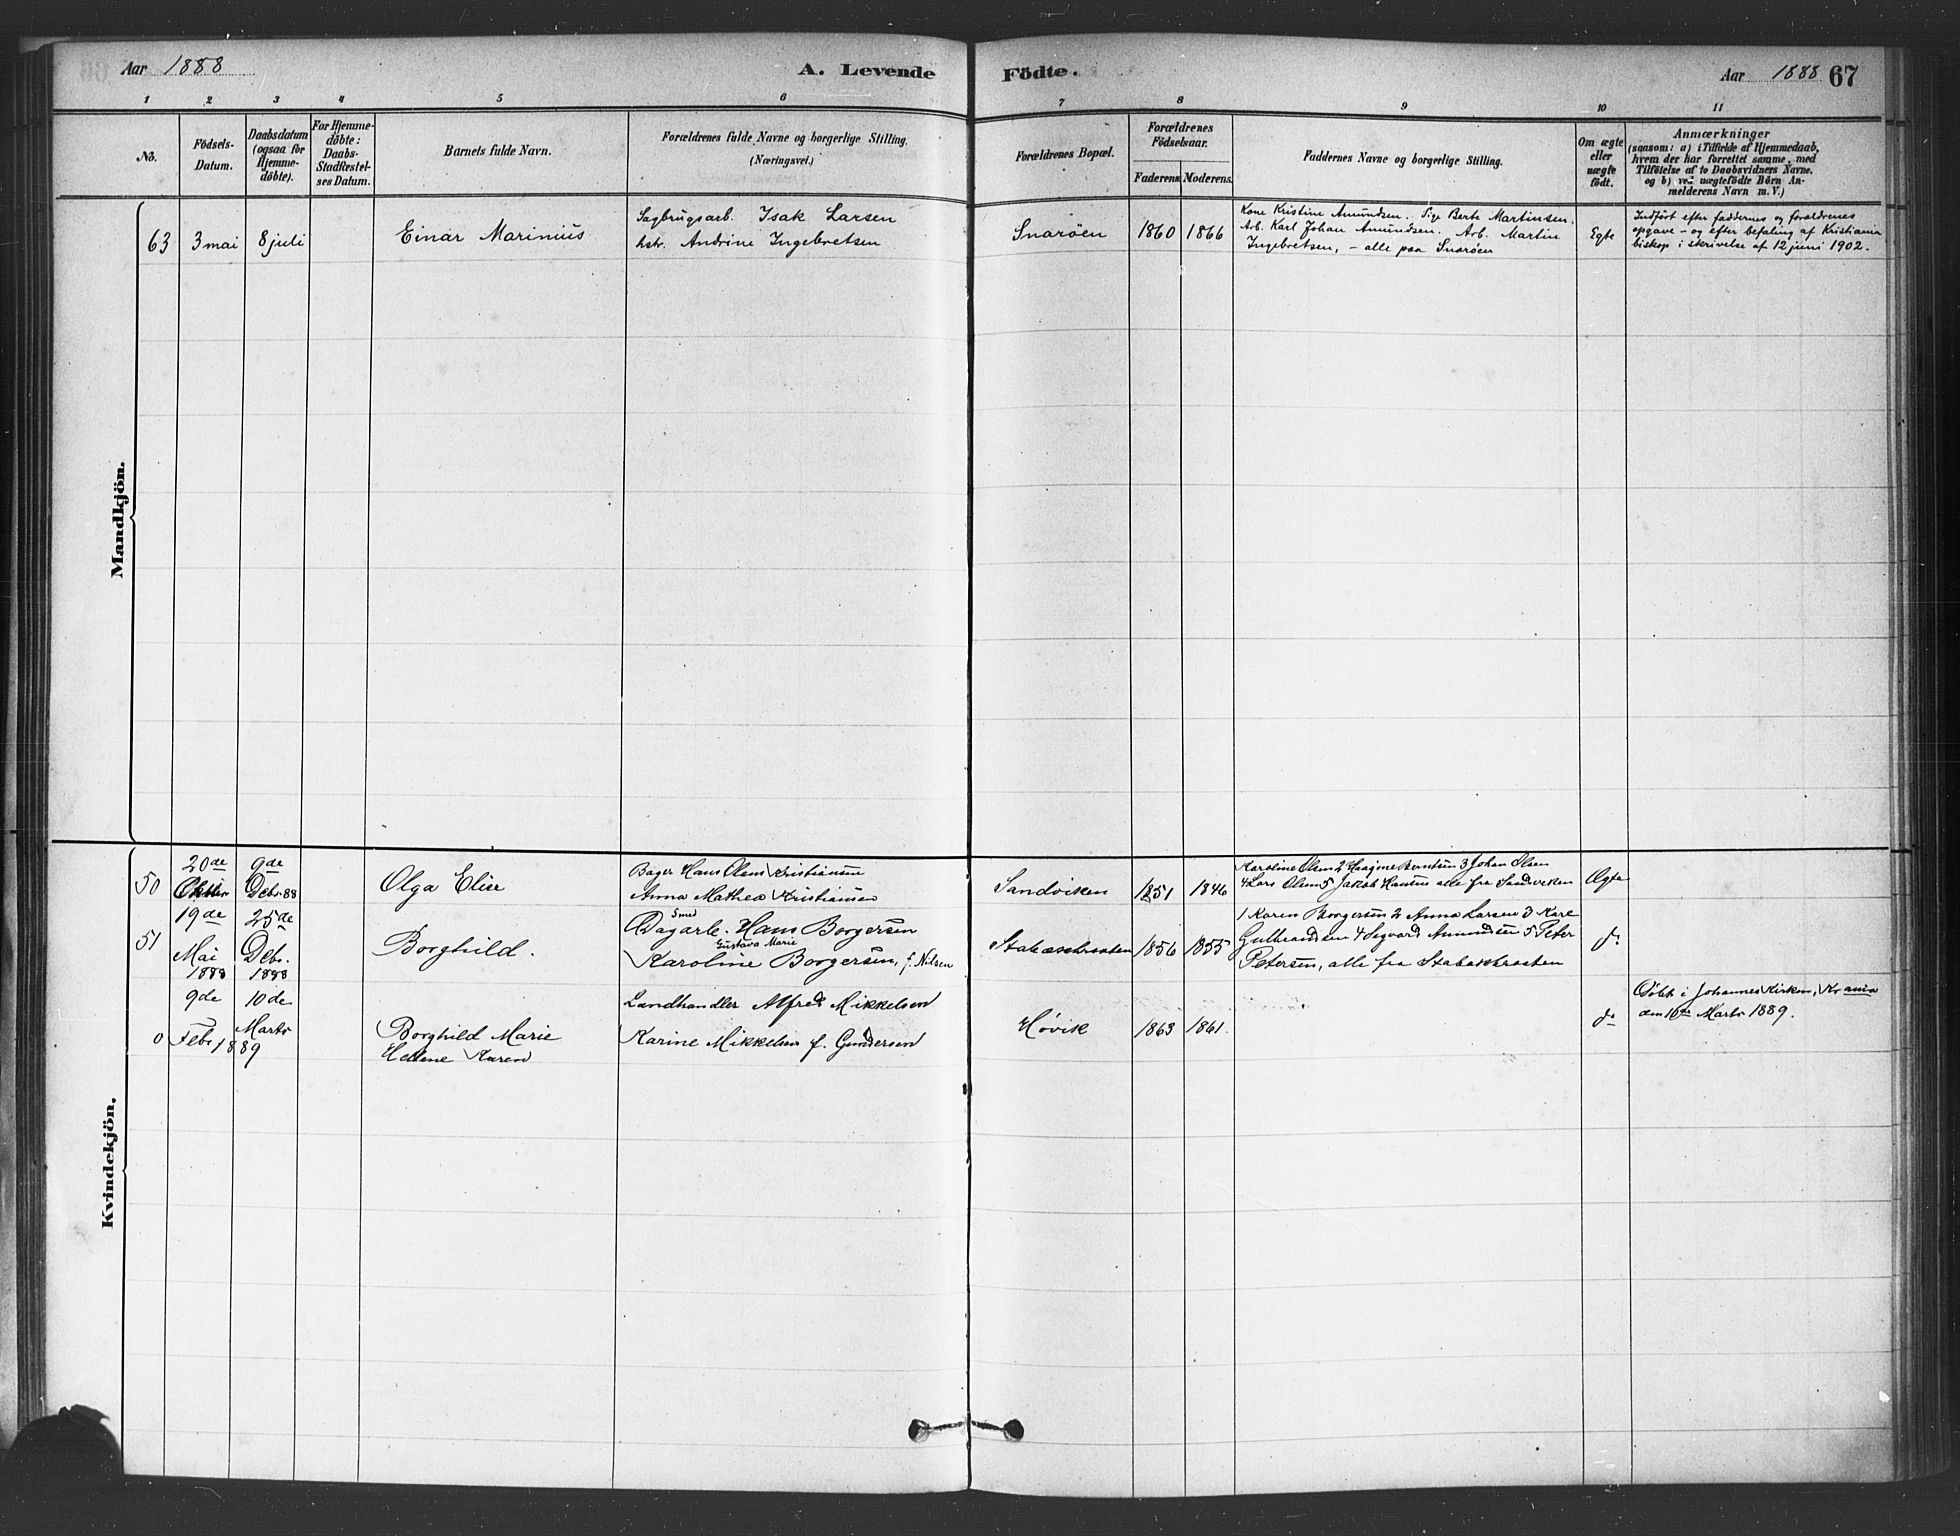 Aar 1888
A. Levende Födte.
Aar 1888 67
1 2 3 4 5 6 7 8 9 10 11
No.
Födsels-
Datum.
Daabsdatum
(ogsaa for
Hjemme-
döbte).
For Hjemme-
döbte:
Daabs-
Stadfæstel-
ses Datum.
Barnets fulde Navn.
Forældrenes fulde Navne og borgerlige Stilling.
(Næringsvei.)
Forældrenes Bopæl.
Forældrenes
Födselsaar.
Faderens Moderens.
Faddernes Navne og borgerlige Stilling.
Om ægte
eller
uægte
födt.
Anmærkninger
(saasom: a) i Tilfælde af Hjemmedaab,
hvem der har forrettet samme, med
Tilföielse af to Daabsvidners Navne,
og b) ved uægtefödte Börn An-
melderens Navn m. V.)
Mandkjön.
63 3 mai 8 juli
Einar Marinius
Sagbrugsarb. Isak Larsen
hstr. Andrine Ingebretsen
Snarøen
1860 1866
Kone Kristine Amundsen. Pige Berte Martinsen.
Arb. Karl Johan Amundsen. Arb. Martin
Ingebretsen, – alle paa Snarøen
Egte
Indført efter faddernes og forældrenes
opgave – og efter befaling af Kristiania
biskop i skrivelse af 12 juni 1902.
Kvindekjön.
50
20de
Oktbr
9de
Debr. 88
Olga Elise
Bager Hans Olaus Kristiansen
Anna Mathea Kristiansen
Sandviken
1851 1846
Karoline Olsen 2 Haagine Berntsen 3 Johan Olsen
4 Lars Olsen 5 Jakob Hansen alle fra Sandviken
Ægte
51
19de
Mai
1888
25de
Debr.
1888
Borghild.
Smed
Dagarb. Hans Borgersen
Gustava Marie
Karoline Borgersen, f. Nilsen
1856 1855
1 Karen Borgersen 2 Anna Larsen 3 Kare
Gulbrandsen 4 Sigvard Amundsen 5 Peter
Petersen, alle fra
do
0
9de
Febr 1889
10de
Marts
Borghild Marie
Hellene Karen
Landhandler Alfred Mikkelsen
Karine Mikkelsen f. Gundersen
Høvik
1863 1861.
do
Døbt i Johannes Kirken, Krania
den 10de Marts 1889.